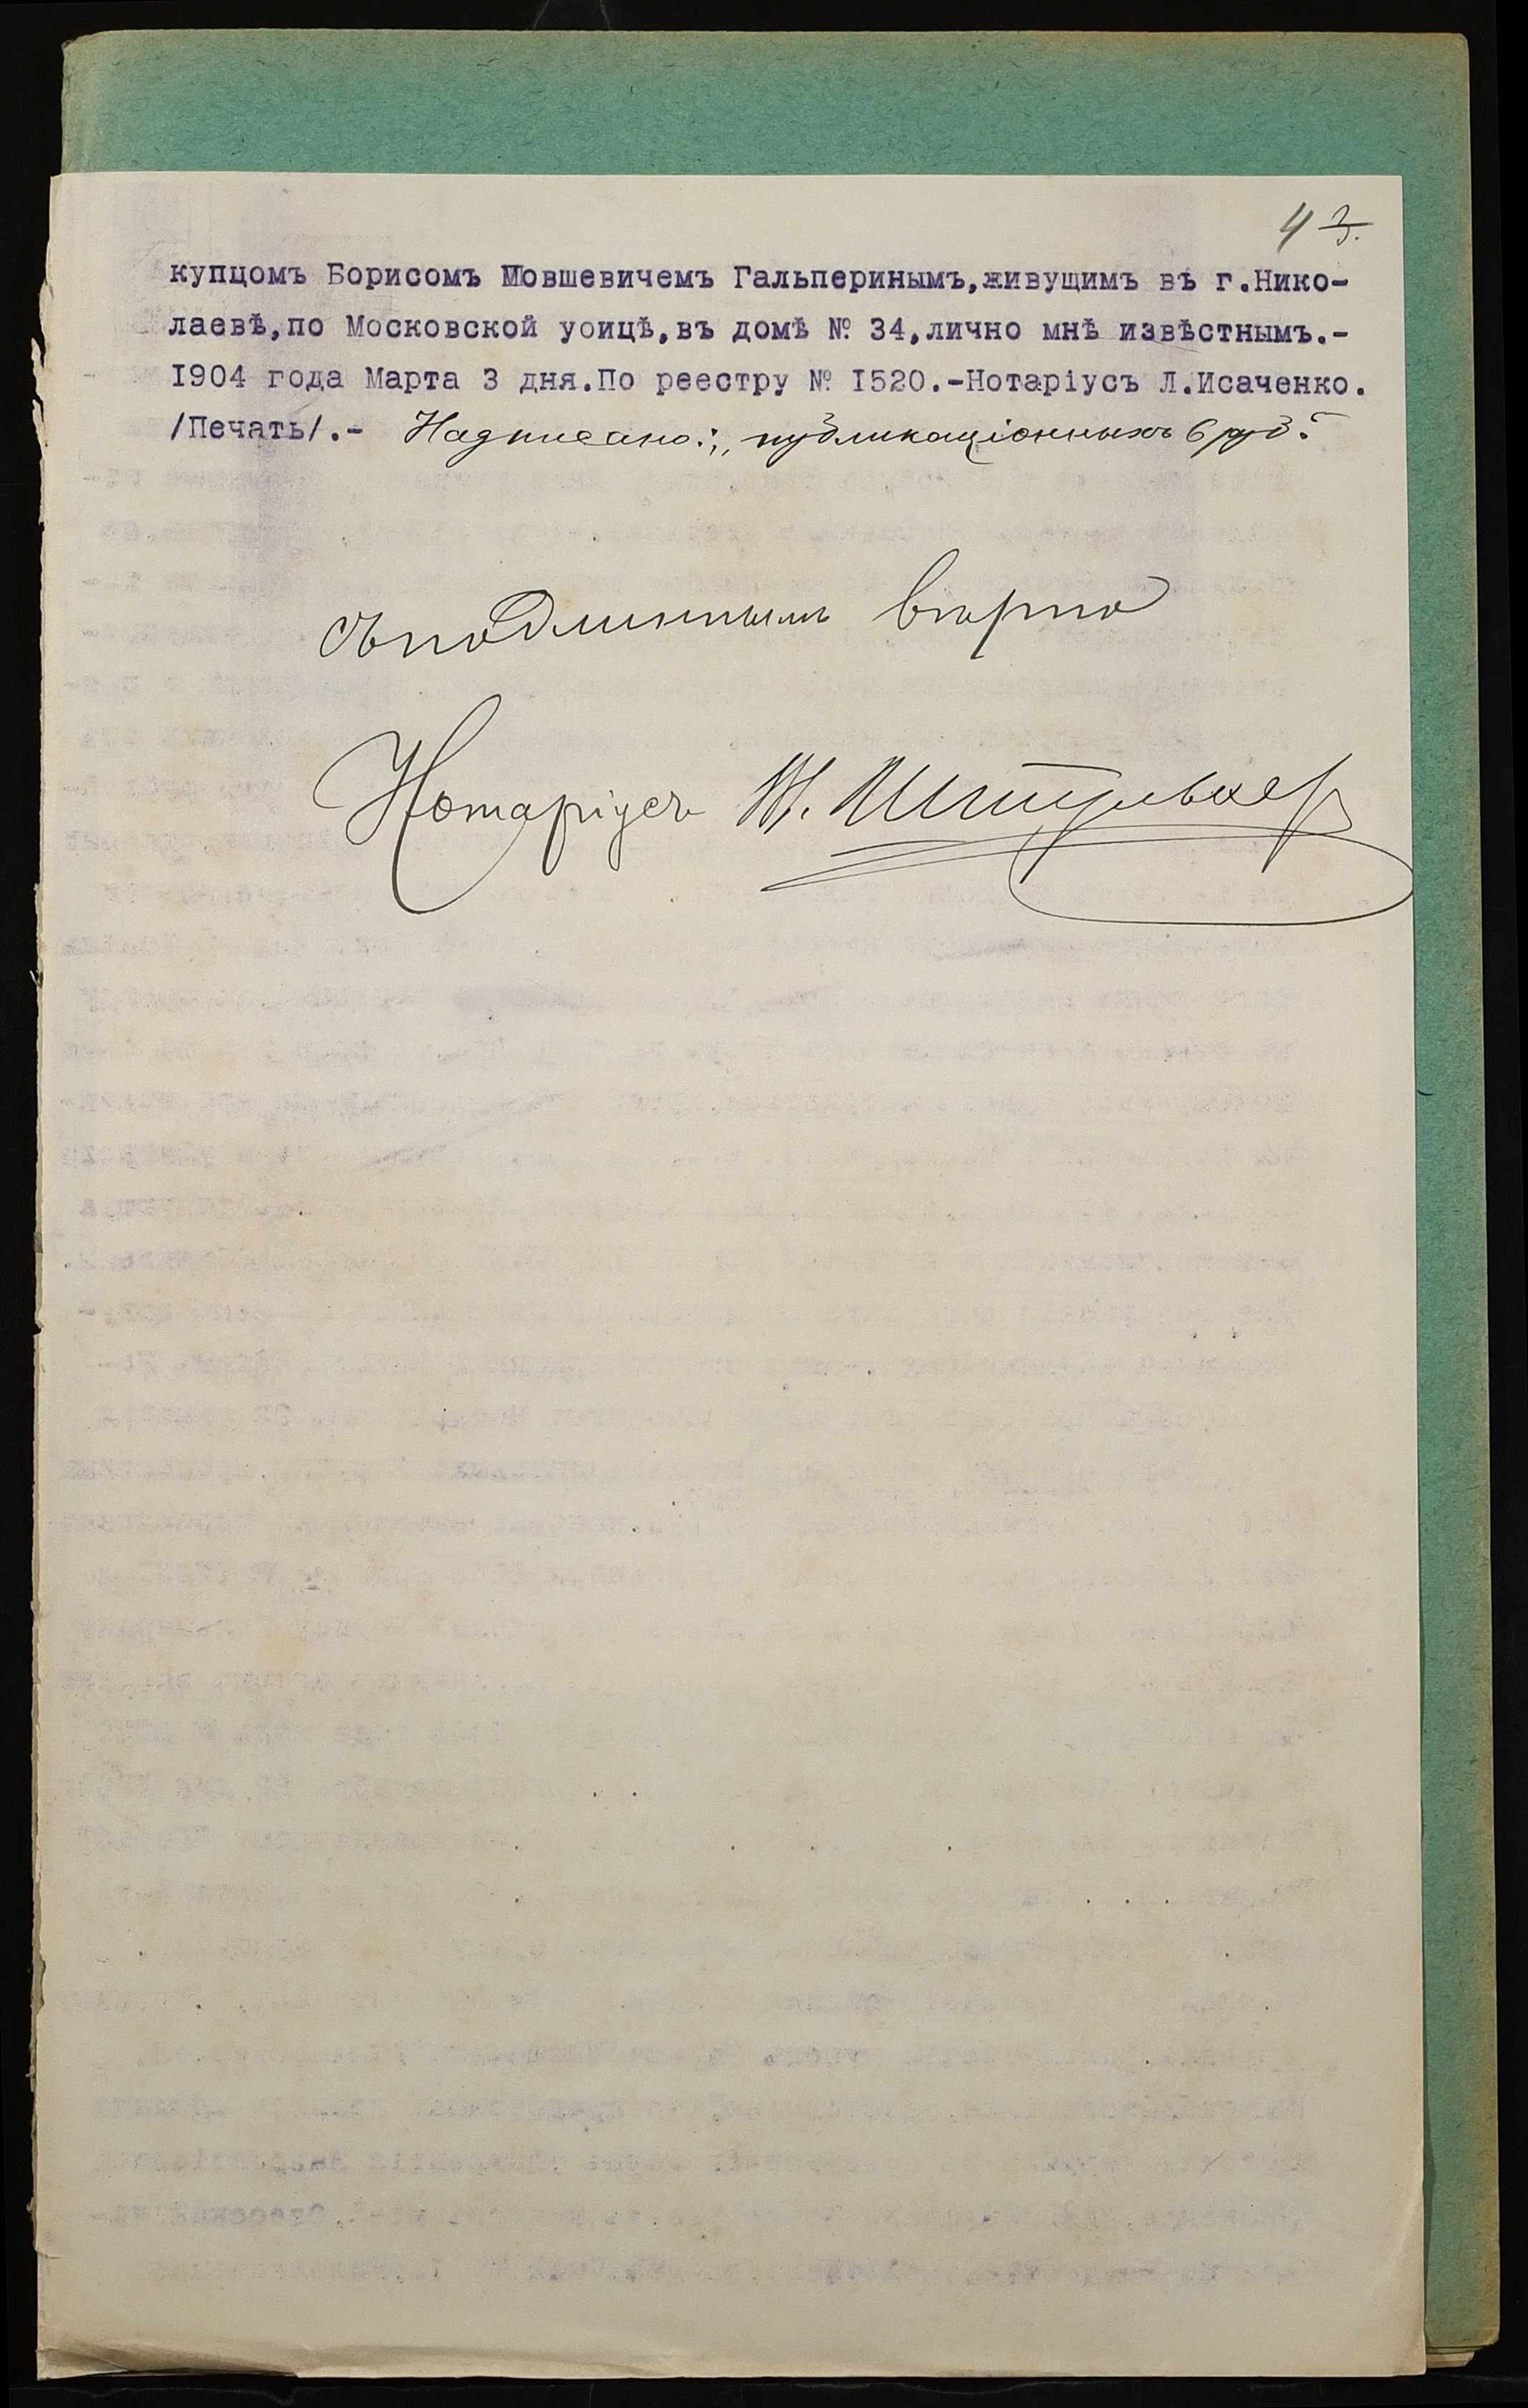 43.
купцомъ Борисомъ Мовшевичемъ Гальперинымъ,живущимъ въ г.Нико-
лаевѣ,по Московской уоицѣ,въ домѣ № 34,лично мнѣ извѣстнымъ.-
I904 года Марта 3 дня.По реестру № I520.-Нотаріусъ Л.Исаченко.
/Печать/.- Надписано: „публикаціонныхъ 6 руб.“
Съ подлиннымъ вѣрно
Нотаріусъ